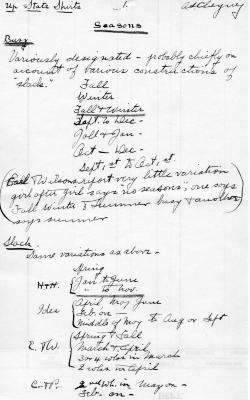 Up State Shirts 1. A.S. Cheyney
Seasons
Busy
Variously designated - probably chiefly on
account of various constructions of
"slack." Fall
Winter
Fall & Winter
Sept. to Dec -
Fall & Jan -
Oct - Dec -
Sept, 1st to Oct, 1st.
& Wilson report very little variation
girl after girl says no seasons; one says
Fall Winter & Summer busy & another
says summer
Slack.
Same variations as above -
Spring
H & H. Jan to June
" to Nov.
Ides April May June
Feb. on -
Middle of May to Aug or Sept
R. & W. Spring & Fall
March & April
3 or 4 wks in March
2 wks in April
C - & P. 2nd Wk. in May on -
Feb. on -